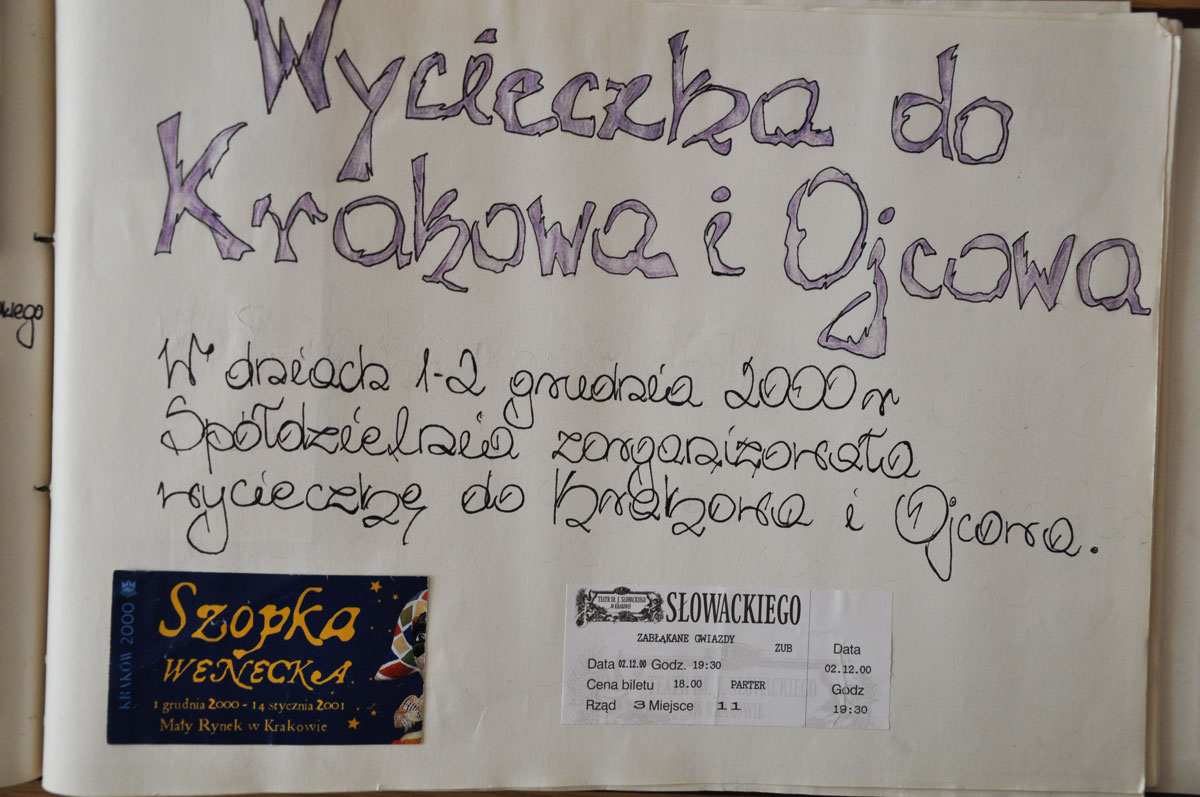 Wycieczka do
Krakowa i Ojcowa
W dniach 1-2 grudnia 2000r
Spółdzielnia zorganizowała
wycieczkę do Krakowa i Ojcowa.
KRAKÓW 2000
Szopka
WENECKA
1 grudnia 2000 - 14 stycznia 2001
Mały Rynek w Krakowie
TEATR IM. J. SŁOWACKIEGO
W KRAKOWIE
SŁOWACKIEGO
ZABŁĄKANE GWIAZDY
ZUB
Data 02.12.00 Godz. 19:30
Cena biletu 18.00 PARTER
Rząd 3 Miejsce 11
Data
02.12.00
Godz
19:30